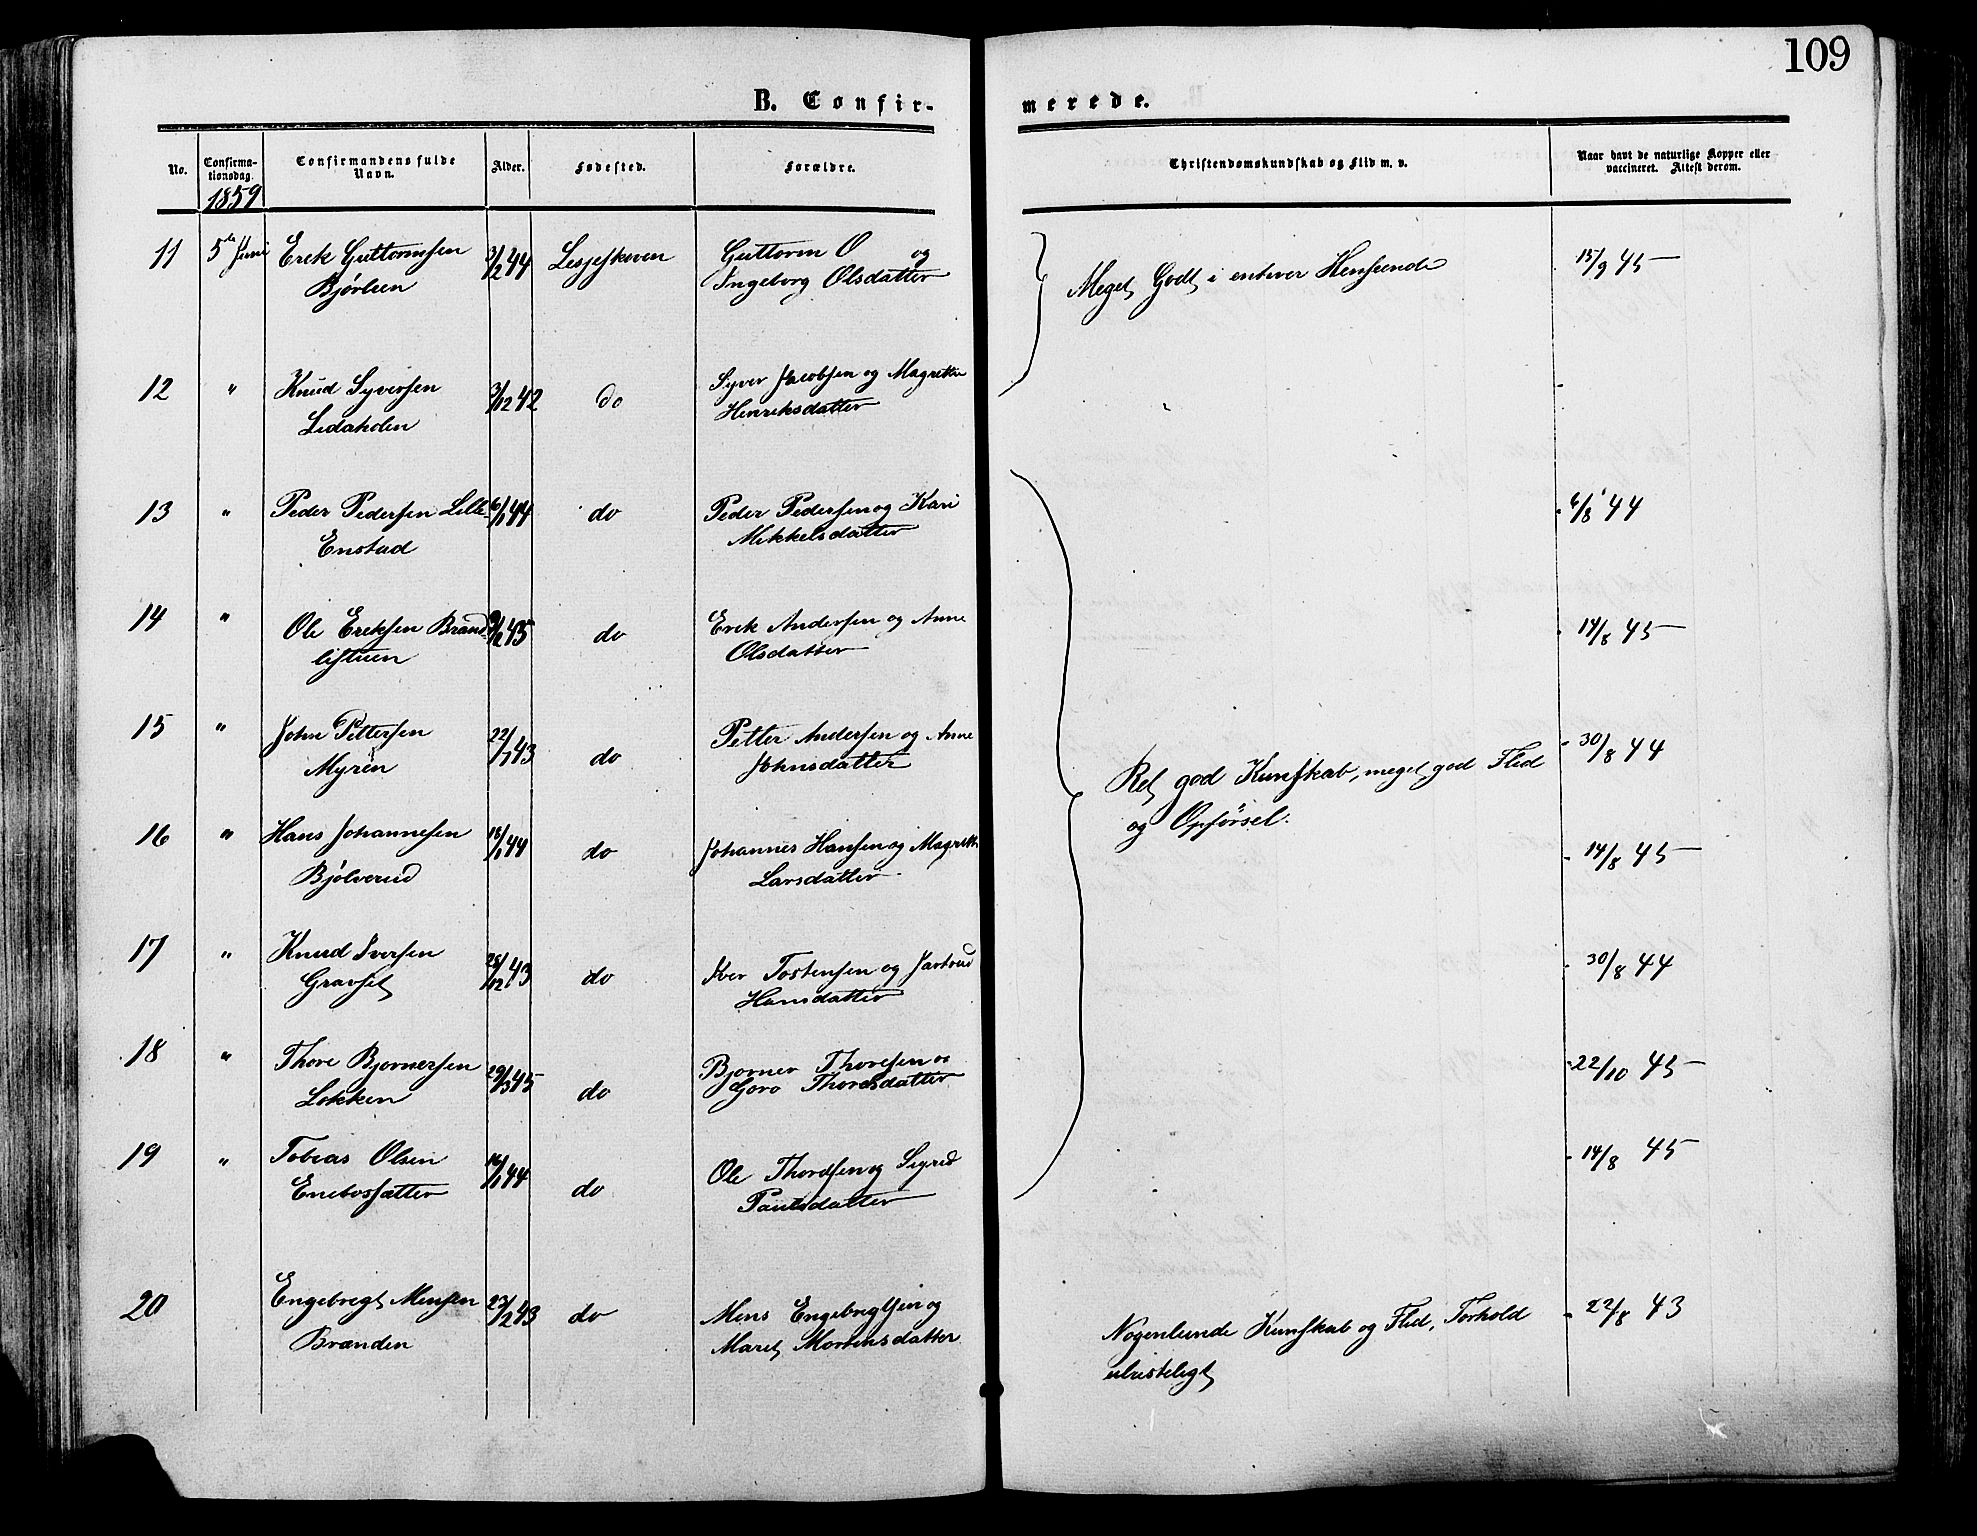 109
B. Confirmerede.
No.
Confirmationsdag.
1859
Confirmandens fulde Navn.
Alder.
Fødested.
Forældre.
Christendomskundskab og Flid m. v.
Naar havt de naturlige Kopper eller vaccineret. Attest derom.
11 5te Juni Erek Guttormsen 3/2 44 Lesjeskoven Guttorm O og 15/9 45
Bjørlien Ingeborg Olsdatter
Meget Godt i enhver Henseende
12 " Knud Syversen 3/12 42 do Syver Jacobsen og Magrethe
Lidaholen Henriksdatter
13 " Peder Pedersen Lille 6/1 44 do Peder Pedersen og Kari 6/8 44
Enstad Mikkelsdatter
14 " Ole Ereksen Brand 45 do Erek Andersen og Anne 14/8 45
listuen Olsdatter
15 " John Pettersen 22/7 43 do Petter Andersen og Anne 30/8 44
Myren Johnsdatter
Ret god Kunskab, meget god Flid
og Opførsel.
16 " Hans Johannesen 18/1 44 do Johannes Hansen og Magrethe 14/8 45
Bjølverud Larsdatter
17 " Knud Iversen 28/12 43 do Iver Tostensen og Jartrud 30/8 44
Gravset Hansdatter
18 " Thore Bjornersen 29/3 45 do Bjorner Thoresen og 22/10 45
Løkken Goro Thordsdatter
19 " Tobias Olsen 14/1 44 do Ole Thordsen og Sigrid 14/8 45
Enebosætter Paulsdatter
20 Engebregt Mensen 23/2 43 do Mens Engebregtsen og 22/8 43
Brænden Maret Mortensdatter
Nogenlunde Kunskab og Flid, Forhold
ulasteligt